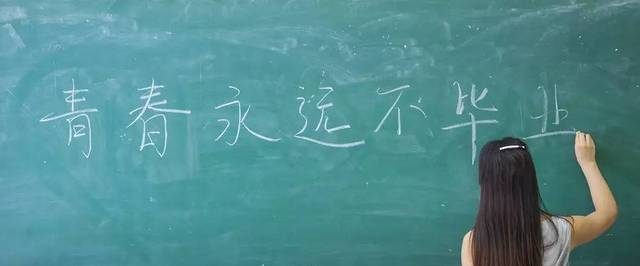 青春永远不毕业